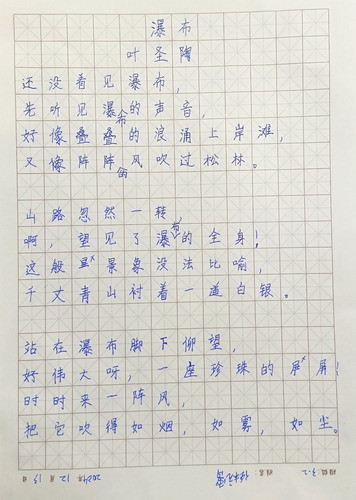 瀑布
叶圣陶
还没看见瀑布，
先听见瀑布的声音，
好像叠叠的浪涌上岸滩，
又像阵阵的风吹过松林。
山路忽然一转，
啊，望见了瀑布的全身！
这般景象没法比喻，
千丈青山衬着一道白银。
站在瀑布脚下仰望，
好伟大呀，一座珍珠的屏！
时时来一阵风，
把它吹得如烟，如雾，如尘。
班级 3.2 姓名 2024年 12月 19日